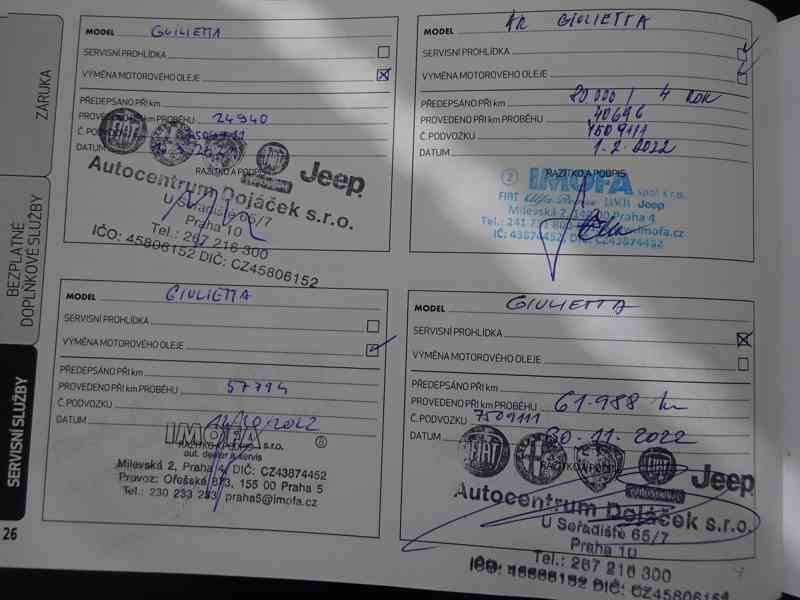 ZÁRUKA
BEZPLATNÉ
DOPLŇKOVÉ SLUŽBY
SERVISNÍ SLUŽBY
26
MODEL GUILIETTA
SERVISNÍ PROHLÍDKA
VÝMĚNA MOTOROVÉHO OLEJE
PŘEDEPSÁNO PŘI km
PROVEDENO PŘI km PROBĚHU 24940
Č. PODVOZKU
DATUM
RAZÍTKO A PODPIS
FIAT
Jeep
Autocentrum Dojáček s.r.o.
U Seřadiště 65/7
Praha 10
Tel.: 267 216 300
IČO: 45806152 DIČ: CZ45806152
MODEL AR GIULIETTA
SERVISNÍ PROHLÍDKA
VÝMĚNA MOTOROVÉHO OLEJE
PŘEDEPSÁNO PŘI km 80 000 / 4 ROK
PROVEDENO PŘI km PROBĚHU 40696
Č. PODVOZKU 7509111
DATUM 1.2.2022
RAZÍTKO A PODPIS
2 IMOFA spol. s r.o.
FIAT Alfa Romeo LANCIA Jeep
Milevská 2, Praha 4
IČ: 43874452, DIČ: CZ43874452
MODEL GIULIETTA
SERVISNÍ PROHLÍDKA
VÝMĚNA MOTOROVÉHO OLEJE
PŘEDEPSÁNO PŘI km
PROVEDENO PŘI km PROBĚHU 57794
Č. PODVOZKU
DATUM 2022
IMOFA s.r.o. 6
RAZÍTKO A PODPIS
aut. dealer a servis
Milevská 2, Praha 4, DIČ: CZ43874452
Provoz: Ořešská 873, 155 00 Praha 5
Tel.: 230 233 233, praha5@imofa.cz
MODEL GIULIETTA
SERVISNÍ PROHLÍDKA
VÝMĚNA MOTOROVÉHO OLEJE
PŘEDEPSÁNO PŘI km
PROVEDENO PŘI km PROBĚHU 61.988 km
Č. PODVOZKU 7509111
DATUM 30.11.2022
RAZÍTKO A PODPIS
FIAT
FIAT
Jeep
Autocentrum Dojáček s.r.o.
U Seřadiště 65/7
Praha 10
Tel.: 267 216 300
IČO: 45806152 DIČ: CZ45806152